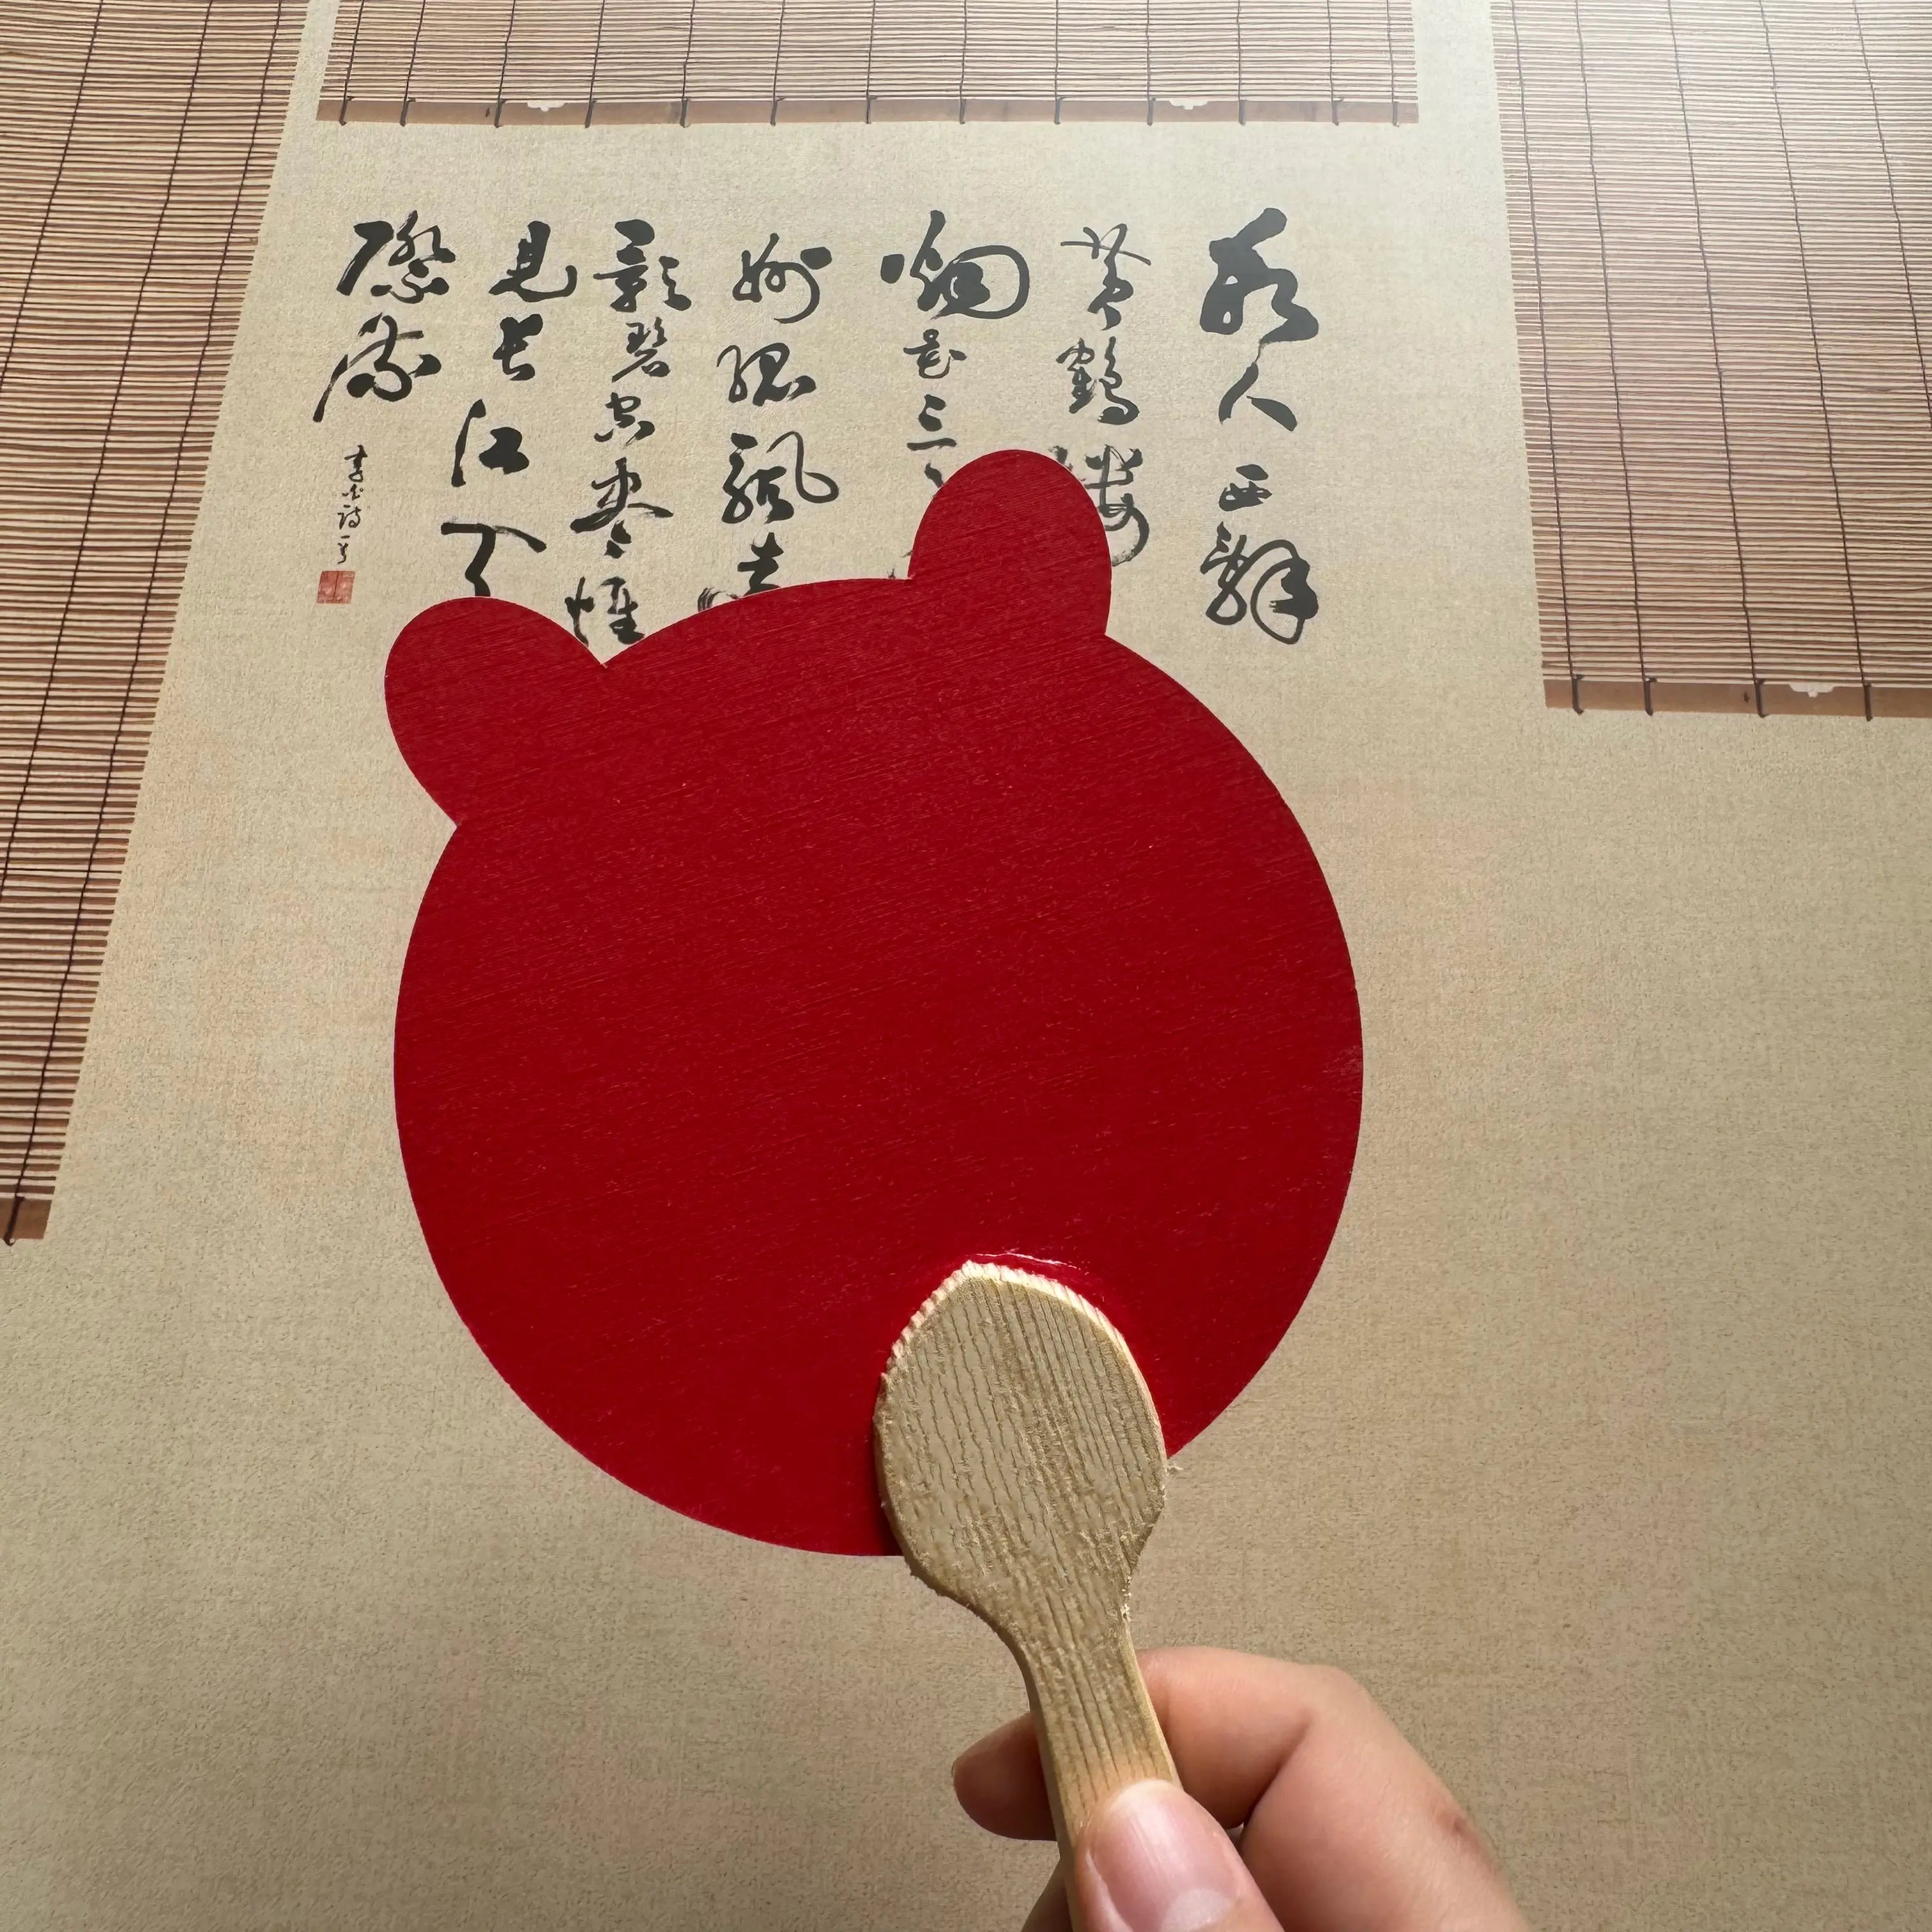 故人西辭
黃鶴樓
烟花三
州孤帆
影碧空盡惟
見長江天
際流
李白詩一首